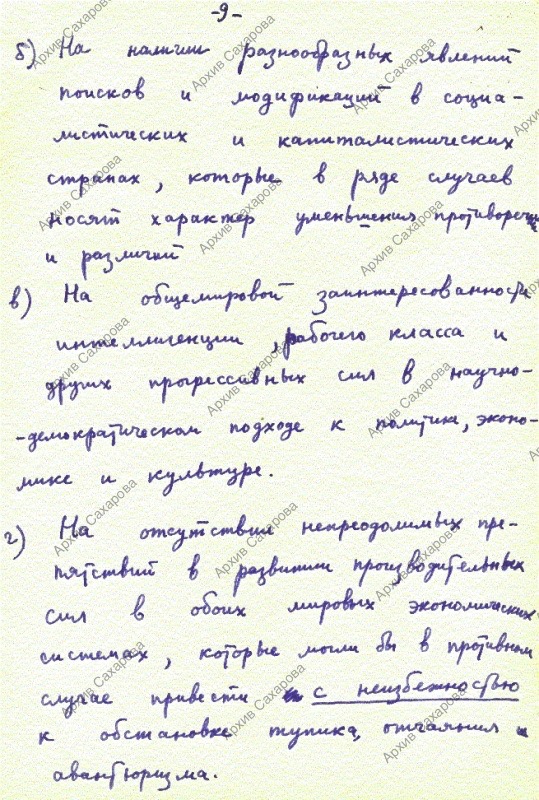 -9-
б) На наличии разнообразных явлений
поисков и модификаций в социа-
листических и капиталистических
странах, которые в ряде случаев
носят характер уменьшения противоречий
и различий
в) На общемировой заинтересованности
интеллигенции, рабочего класса и
других прогрессивных сил в научно-
-демократическом подходе к политике, эконо-
мике и культуре.
г) На отсутствии непреодолимых пре-
пятствий в развитии производительных
сил в обоих мировых экономических
системах, которые могли бы в противном
случае привести с неизбежностью
к обстановке тупика, отчаяния и
авантюризма.
Архив Сахарова